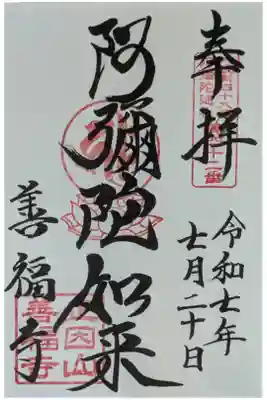 奉拝
十二番
令和七年
七月二十日
阿彌陀如来
善福寺
善福寺